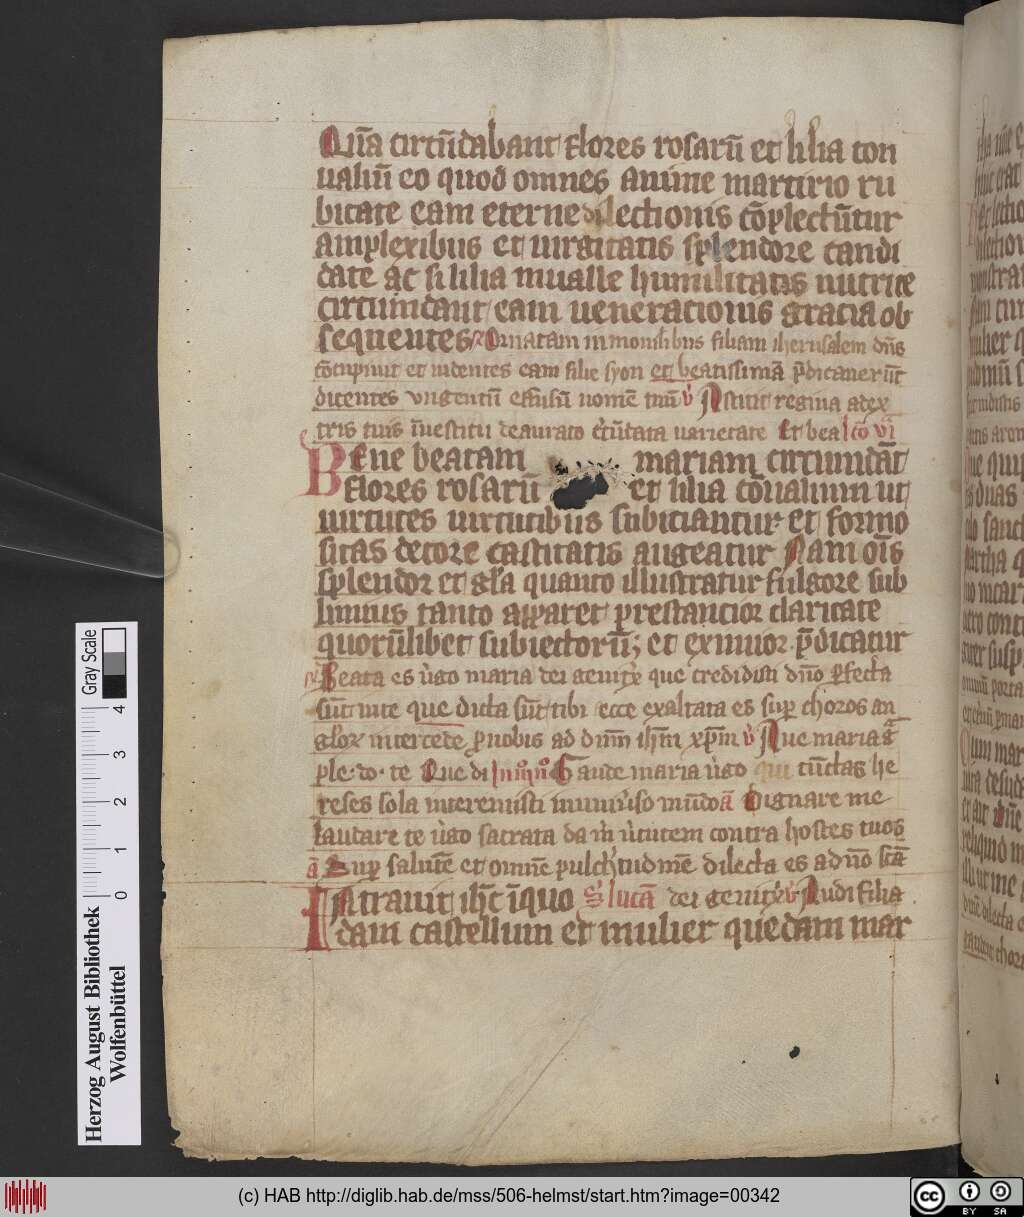 Quā circūdabant flores rosarū et lilia con
ualiū eo quod omnes anime martirio ru
bicate eam eterne dilectionis cōplectūtur
amplexibus et uirgitatis splendore candi
date ac si lilia in ualle humilitatis nutrite
circumdant eam uenerationis gracia ob
sequentes Ornatam in monilibus filiam iherusalem dn̄s
cōcupiuit et uidentes eam filie syon et beatissimā p̄dicauerūt
dicentes ungentū effusū nomē tuū v̾ Astitit regina adex
tris tuis ī uestitu deaurato c̾cūdata uarietate Et bea lc̄o vi
Bene beatam mariam circumdāt
flores rosarū et lilia cōualium ut
uirtutes uirtutibus subiciantur et formo
sitas decore castitatis augeatur Nam oīs
splendor et gl̄a quanto illustratur fulgore sub
limius tanto apparet prestancior claritate
quorūlibet subiectorū; et eximior p̄dicatur
Beata es u̾go maria dei genit̾x que credidisti dn̄o p̱fecta
sūt in te que dicta sūt tibi ecce exaltata es sup̱ choros an
glo℞ intercede p̱ nobis ad dnm̄ ihm̄ xp̄m v̾ Aue maria gͣ
ple· do· te Que di Gaude maria u̾go cūctas he
reses sola interemisti in uniu̾so mūdo ā Dignare me
laudare te u̾go sacrata da m̄ u̾tutem contra hostes tuos
ā Sup̱ salutē et omnē pulch̾tudinē dilecta es a dn̄o
Intrauit ihc̄ ī quo S̾ lucā dei genit̾x v̾ Audi filia
dam castellum et mulier quedam mar
Gray Scale
4
3
2
1
0
Herzog August Bibliothek
Wolfenbüttel
(c) HAB http://diglib.hab.de/mss/506-helmst/start.htm?image=00342
cc
BY SA